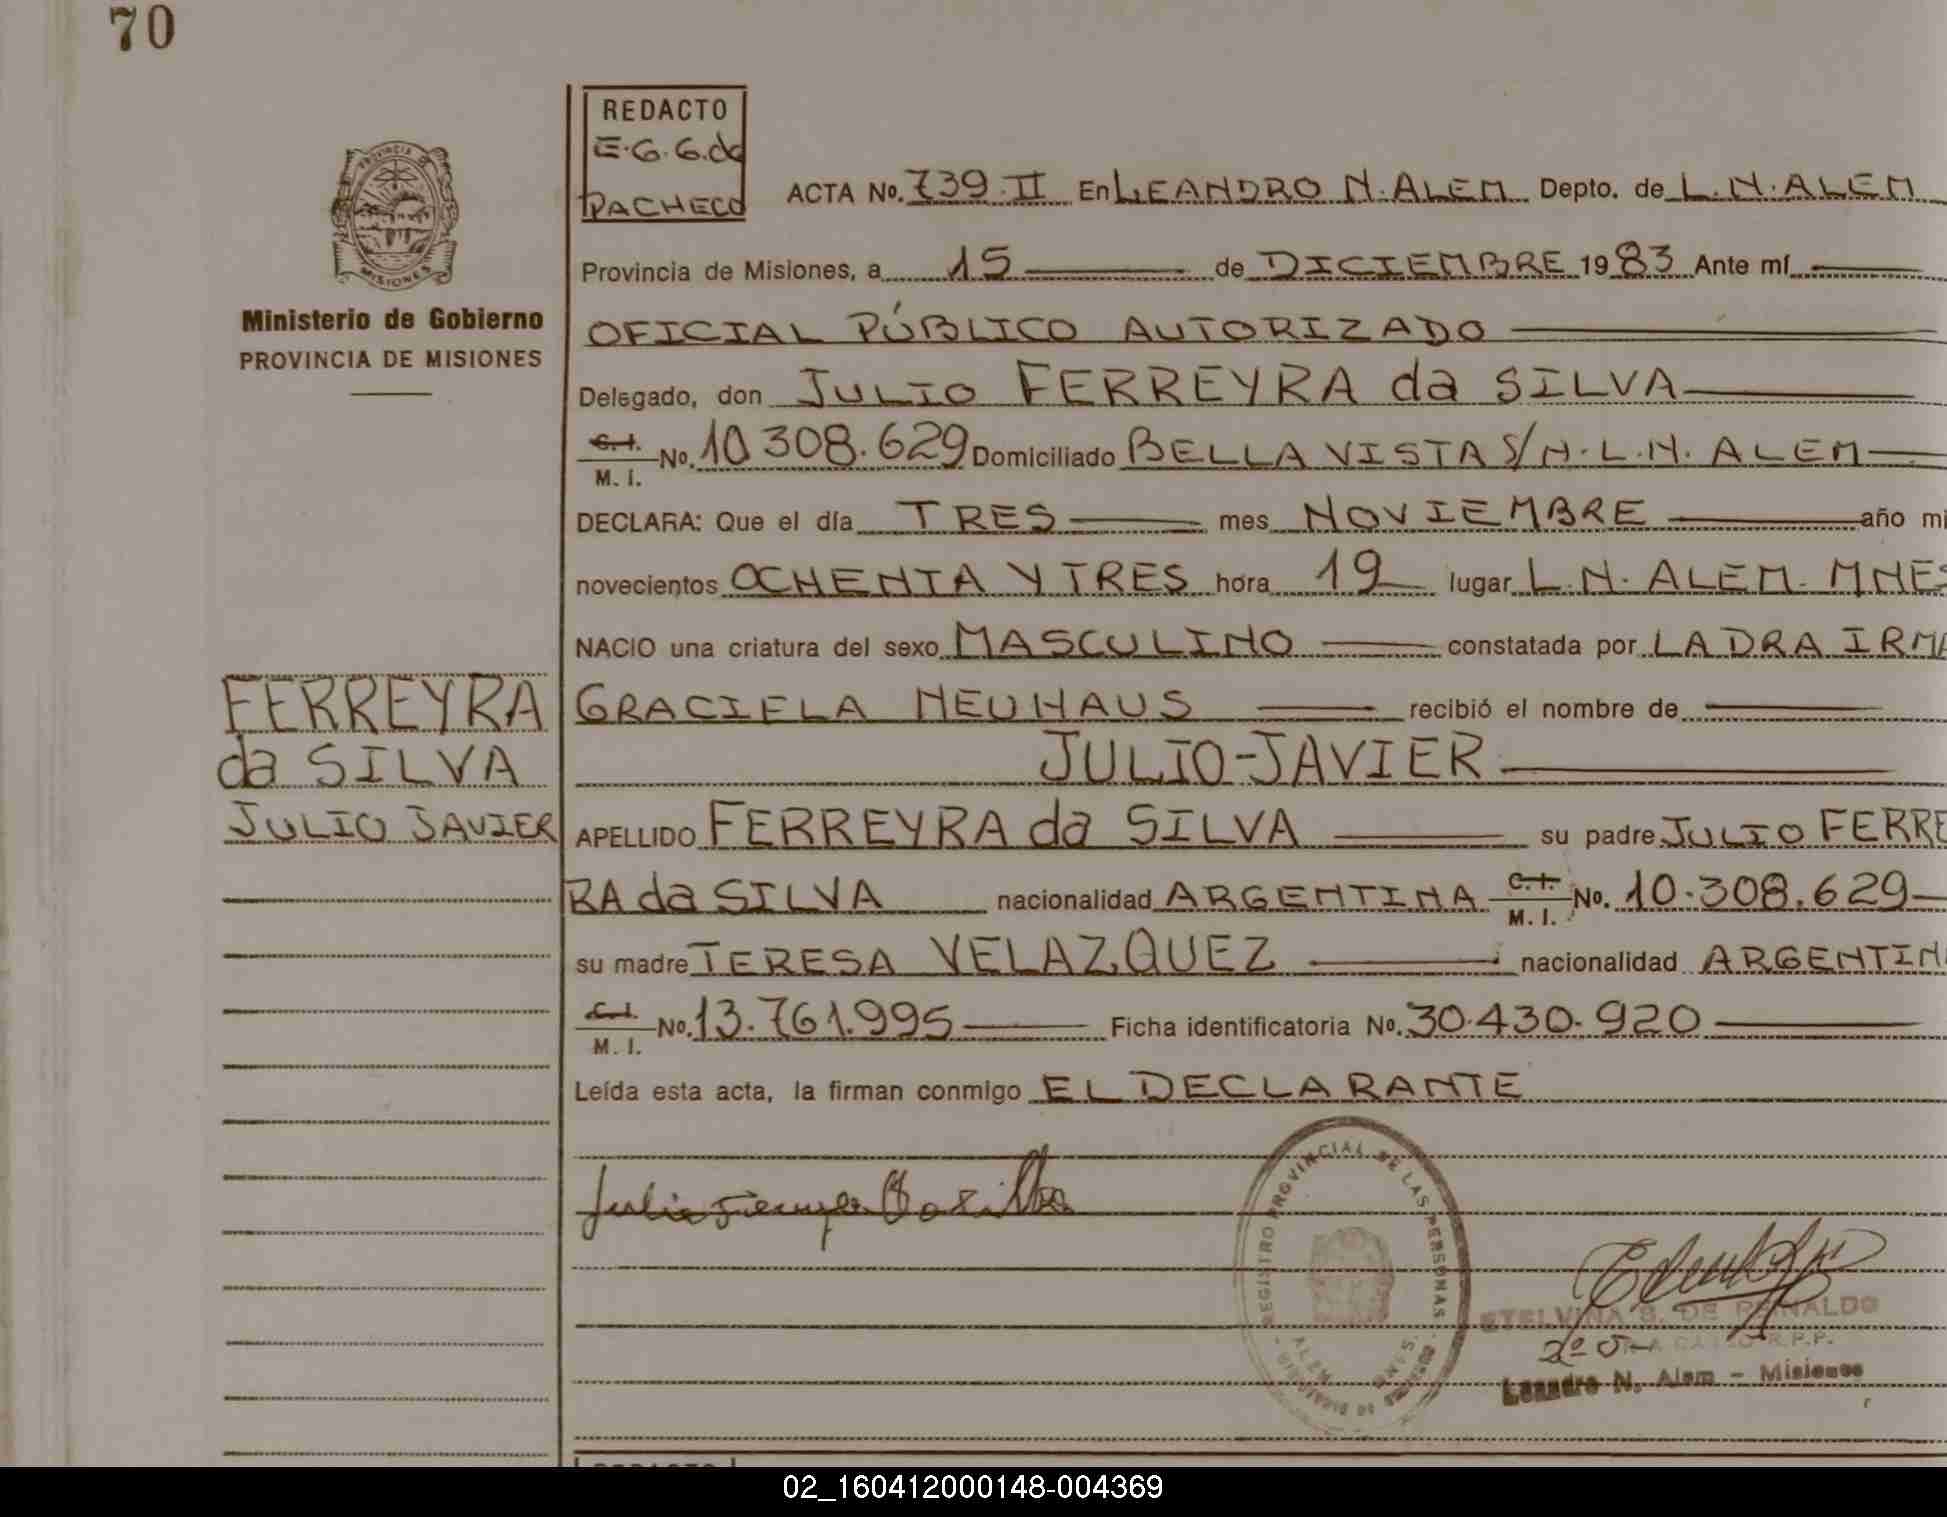 70
REDACTO
E.G.G.de
PACHECO
ACTA No. 739.II En LEANDRO N. ALEM Depto. de L.N. ALEM
Provincia de Misiones, a 15 de DICIEMBRE 1983 Ante mí
OFICIAL PÚBLICO AUTORIZADO
Ministerio de Gobierno
PROVINCIA DE MISIONES
Delegado, don JULIO FERREYRA da SILVA
C.I. M.I. No. 10308.629 Domiciliado BELLA VISTA S/N. L.N. ALEM
DECLARA: Que el día TRES mes NOVIEMBRE año mi
novecientos OCHENTA Y TRES hora 19 lugar L.N. ALEM. MNES
NACIO una criatura del sexo MASCULINO constatada por LA DRA IRMA
GRACIELA NEUHAUS recibió el nombre de
JULIO-JAVIER
FERREYRA
da SILVA
JULIO JAVIER
APELLIDO FERREYRA da SILVA su padre JULIO FERRE
RA da SILVA nacionalidad ARGENTINA C.I. M.I. No. 10.308.629
su madre TERESA VELAZQUEZ nacionalidad ARGENTIN
C.I. M.I. No. 13.761.995 Ficha identificatoria No. 30.430.920
Leída esta acta, la firman conmigo EL DECLARANTE
REGISTRO PROVINCIAL DE LAS PERSONAS
ALEM MNES.
ETELVINA S. DE REINALDO
R.P.P.
Leandro N. Alem - Misiones
REDACTO
02_160412000148-004369